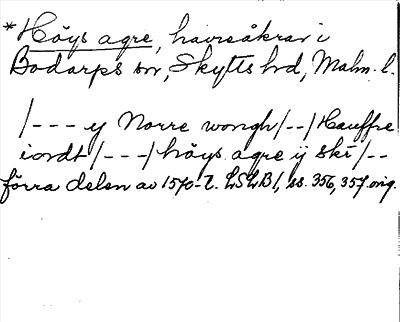 *Höys agre, havreåkrar i
Bodarps sn, Skytts hd, Malm. l.
/--- y Norre wongh /--/ Hauffre
iordt /---/ höys agre ij ski /--
förra delen av 1570-t. LSLB I, ss. 356, 357, orig.